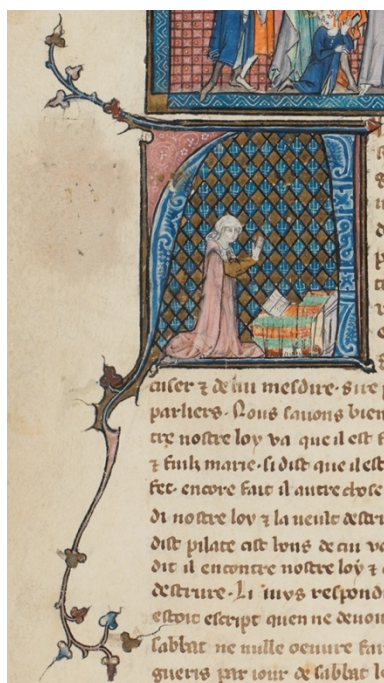 cuser ⁊ de lui mesdire. sire p
parliers. Nous sauons bien
tre nostre loy va que il est f
⁊ fiulz marie. si dist que il est
fet. encore fait il autre chose
di nostre loy ⁊ la ueult destr
dist pilate cist bons de cui vo
dit il encontre nostre loy ⁊
destruire. Li iuys respondi
estoit escript quen ne deuoit
sabbat ne nulle oeuure fai
gueris par iour de sabbat l